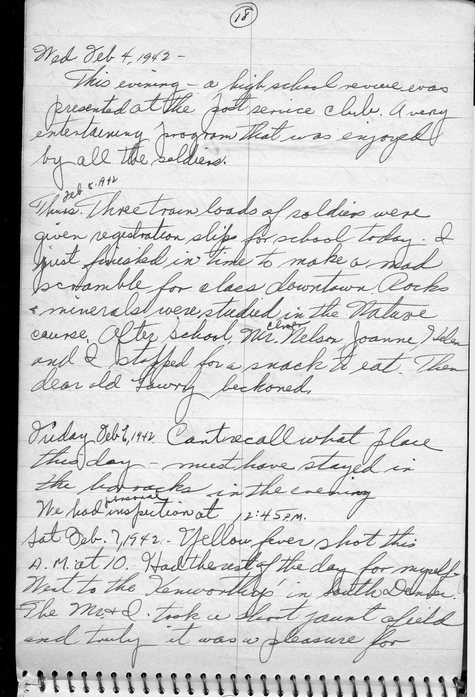 18
Wed Feb 4, 1942 -
This evening - a high school revue was
presented at the post service club. A very
entertaining program that was enjoyed
by all the soldiers.
Feb 5, 1942
Thurs. Three train loads of soldiers were
given registration slips for school today. I
just finished in time to make a mad
scramble for class downtown. Rocks
& minerals were studied in the Nature
course. After school, Mr. Elmer Nelson Joanne Helen
and I stopped for a snack to eat. Then
dear old Lowry beckoned.
Friday Feb 6, 1942. Cant recall what place
this day - must have stayed in
the barracks in the evening
We had personal inspection at 2:45 P.M.
Sat Feb. 7, 1942 - Yellow fever shot this
A.M. at 10. Had the rest of the day for myself -
Went to the Kenworthys in South Denver.
The Mo. & I. took a short jaunt afield
and truly it was a pleasure for